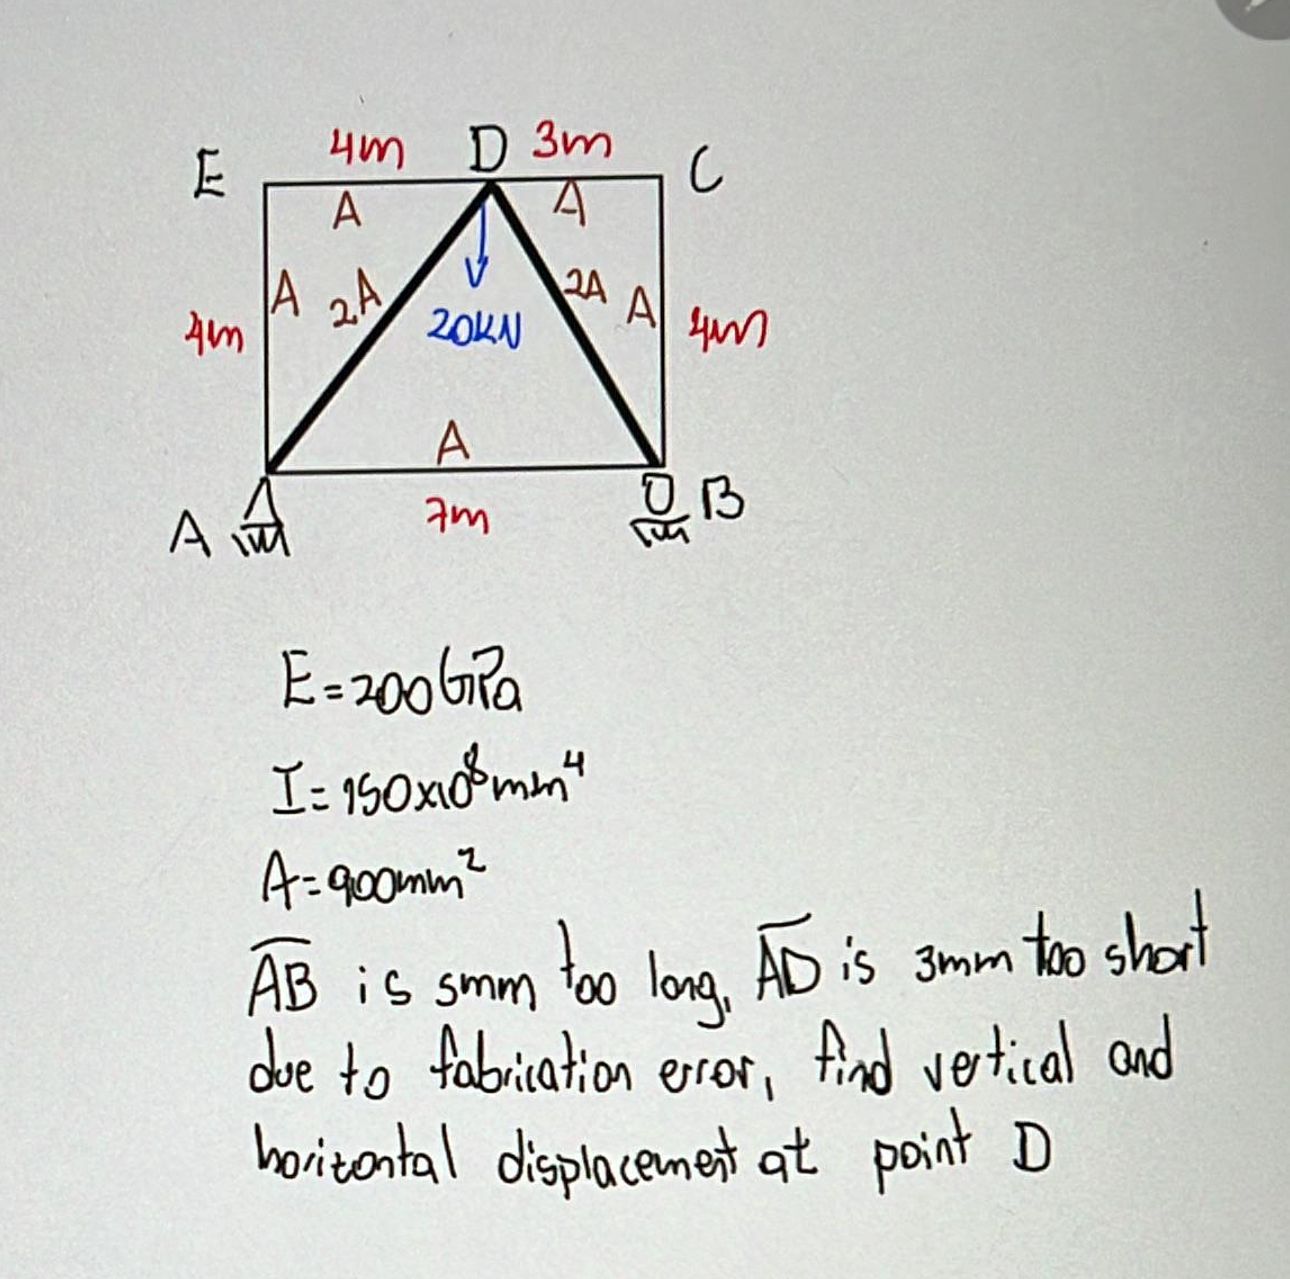 4m D 3m
E C
A A
A 2A 2A A
4m 20KN 4m
A
A 7m B
E=200GPa
I=150x10⁸mm⁴
A=900mm²
AB is 5mm too long, AD is 3mm too short
due to fabrication error, find vertical and
horizontal displacement at point D